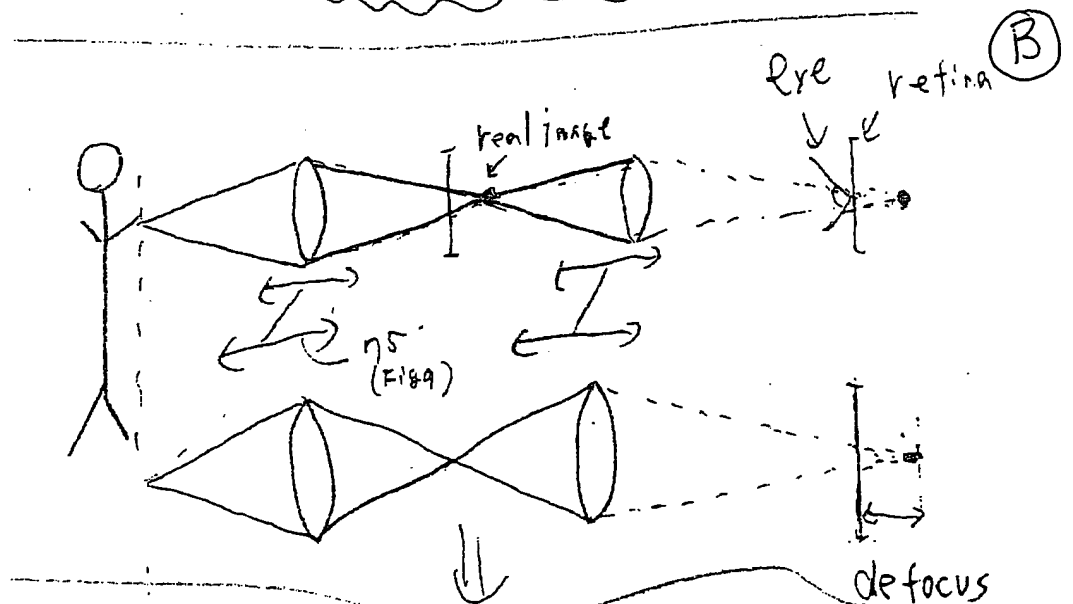 B
eye
retina
real image
75
(Fig9)
defocus